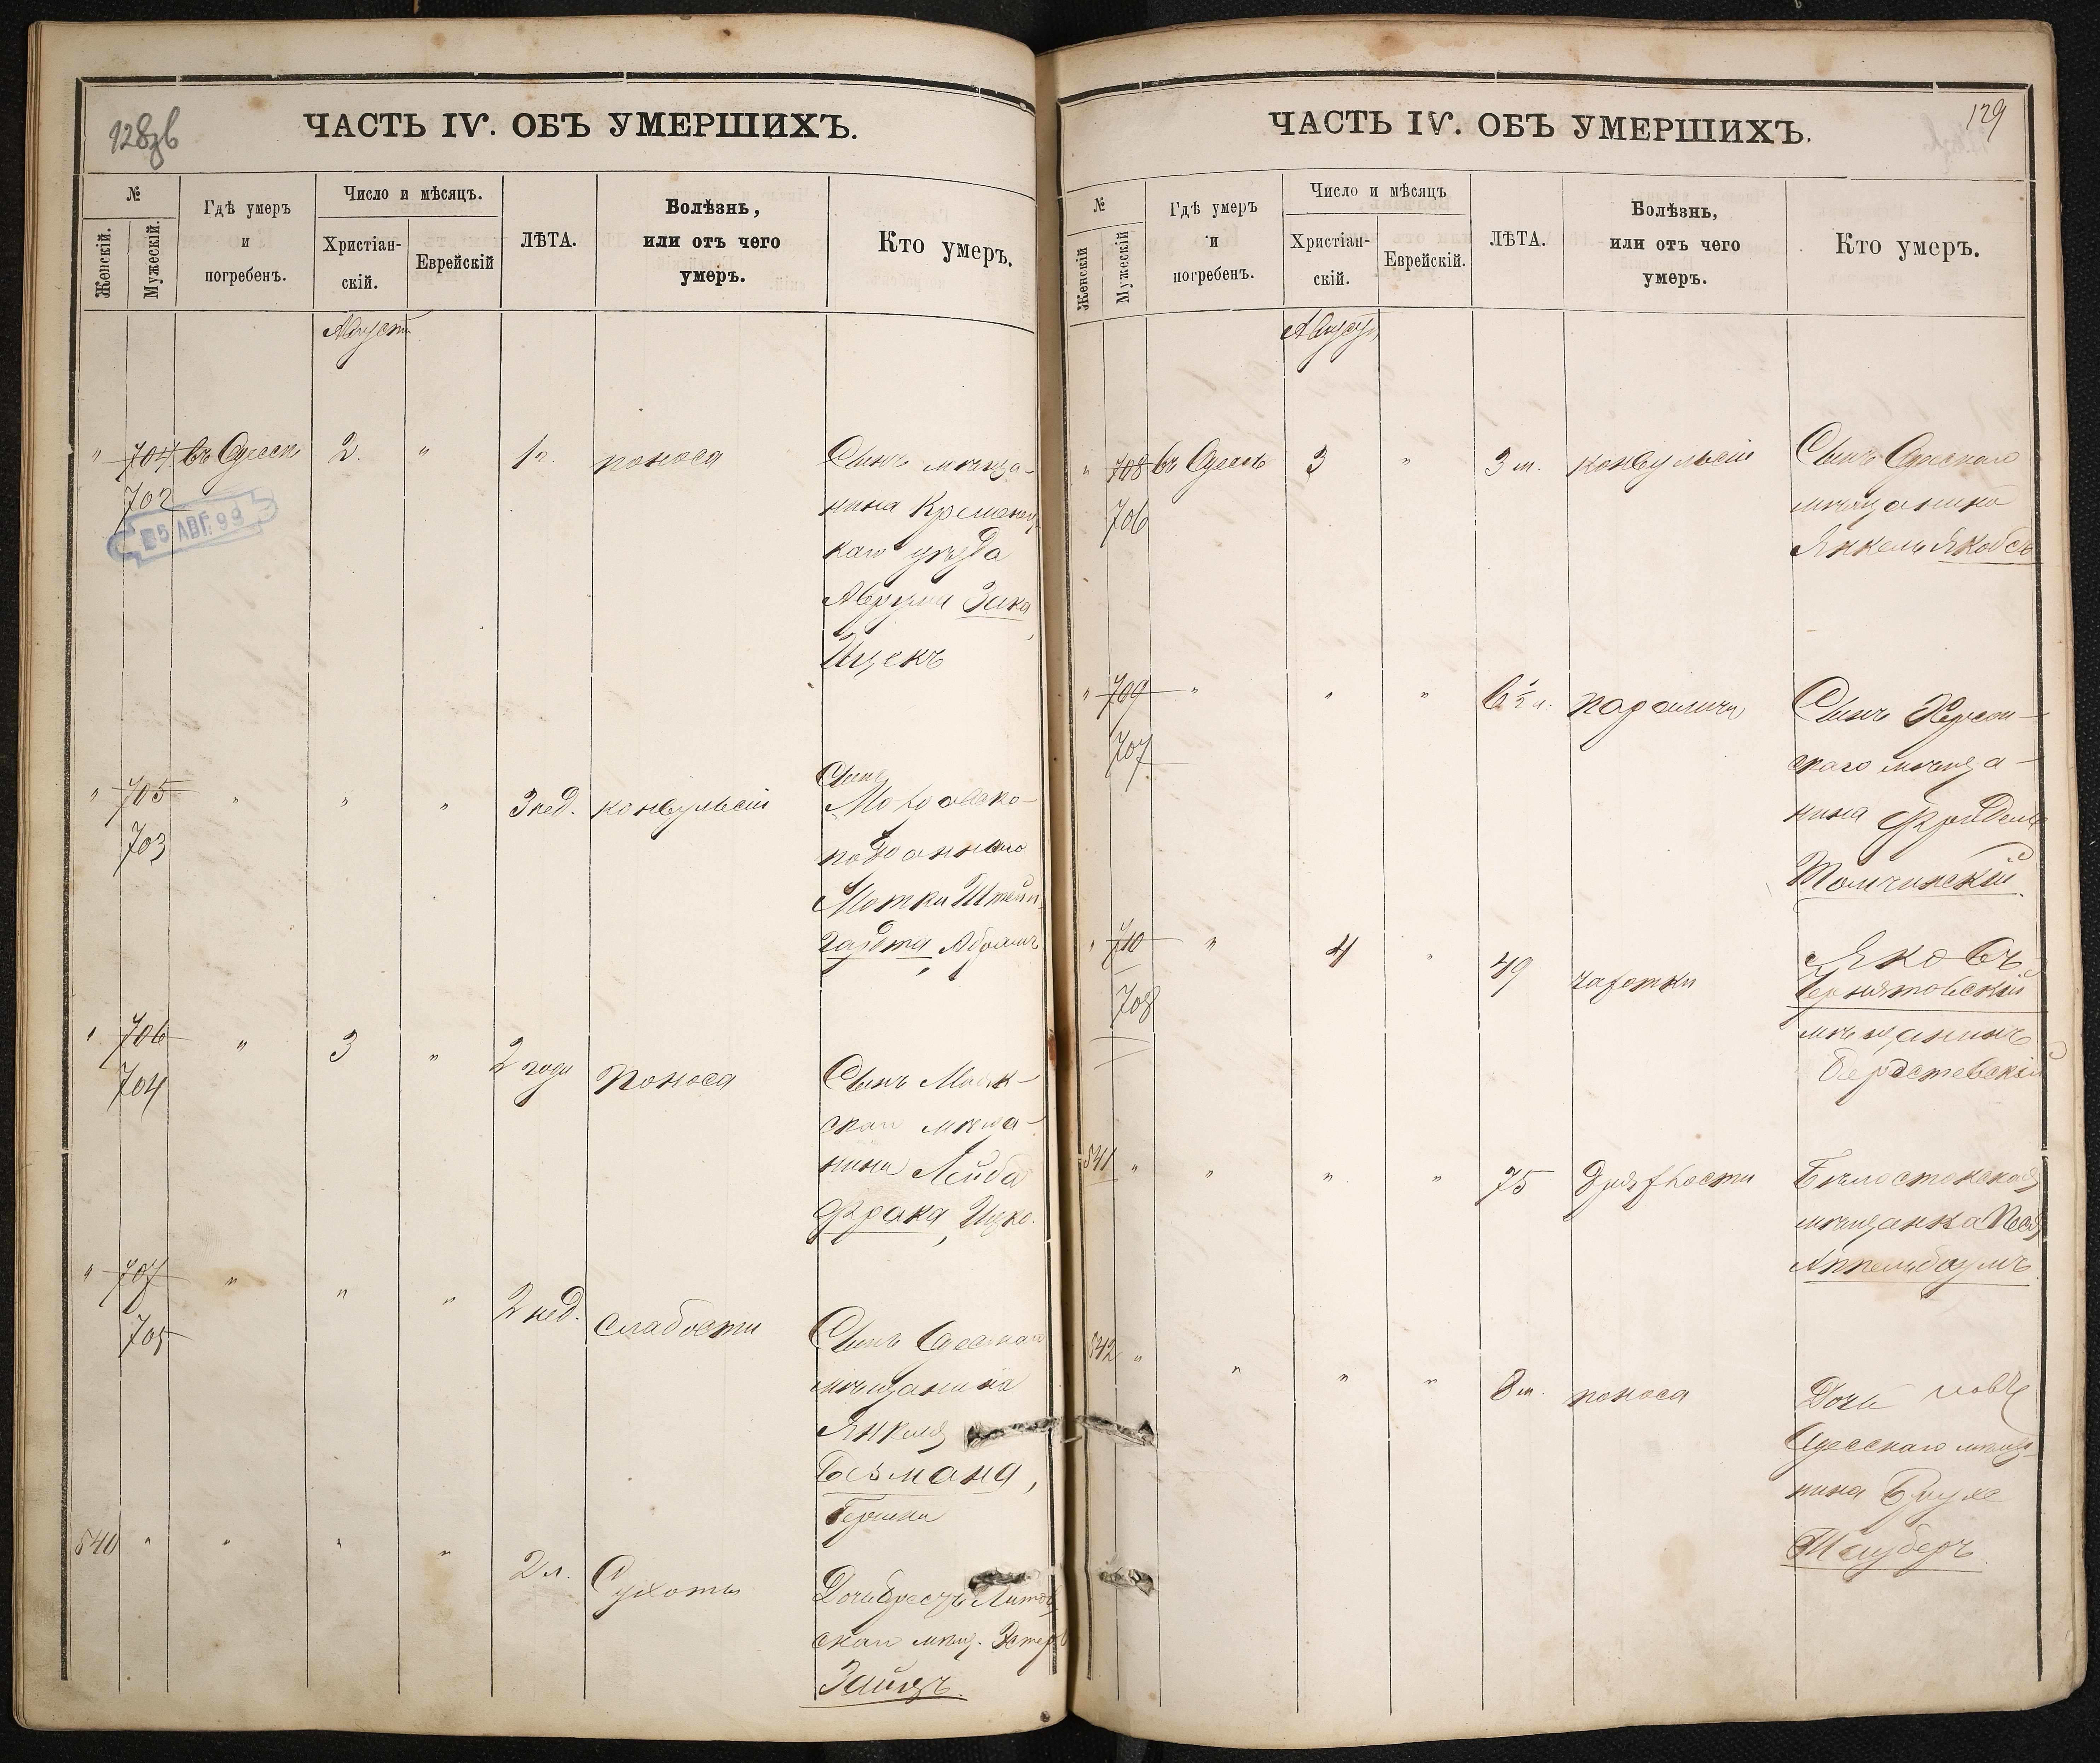 128об
ЧАСТЬ IV. ОБЪ УМЕРШИХЪ.
№
Женскій.
Мужескій.
Гдѣ умеръ
и
погребенъ.
Число и мѣсяцъ.
Христіан-
скій.
Еврейскій
ЛѢТА.
Болѣзнь,
или отъ чего
умеръ.
Кто умеръ.
Августъ
" 704 въ Одессѣ 2. " 1 г. поноса Сынъ мѣща-
702
нина Кременец-
15 АВГ. 99
каго уѣзда
Аврума Зака,
Ицекъ
Сынъ
" 705 " " " 3 нед. конвульсіи Молдавско-
703
подданнаго
Мотки Штейн-
гардта, Абрамъ
" 706 " 3 " 2 года поноса Сынъ Маяк-
704
скаго мѣща-
нина Лейба
Фрака, Ицко.
" 707 " " " 2 нед. слабости Сынъ Одесскаго
705
мѣщанина
Янкеля
Безмана,
Гершка
540 " " " " 2 л. Сухоты Дочь Брестъ Литов-
скаго мѣщ. Эстеръ
Зайцъ.
129
ЧАСТЬ IV. ОБЪ УМЕРШИХЪ.
№
Женскій
Мужескій
Гдѣ умеръ
и
погребенъ.
Число и мѣсяцъ
Христіан-
скій.
Еврейскій.
ЛѢТА.
Болѣзнь,
или отъ чего
умеръ.
Кто умеръ.
Августъ
" 708 въ Одессѣ 3 " 3 м. конвульсіи Сынъ Одесскаго
706
мѣщанина
Янкель Якобсъ
" 709 " " " 6 ½ л. паралича Сынъ Херсон-
707
скаго мѣща-
нина Фридель
Томчинскій.
" 710 " 4 " 49 чахотки Яковъ
708
Чернятовскій
мѣщанинъ
541 " " " " 75 Дряхлости Бѣлостокская
мѣщанка Песя
Аппельбаумъ
542 " " " " 8 м. поноса Дочь
Одесскаго мѣща-
нина Брухе
Тауберъ.